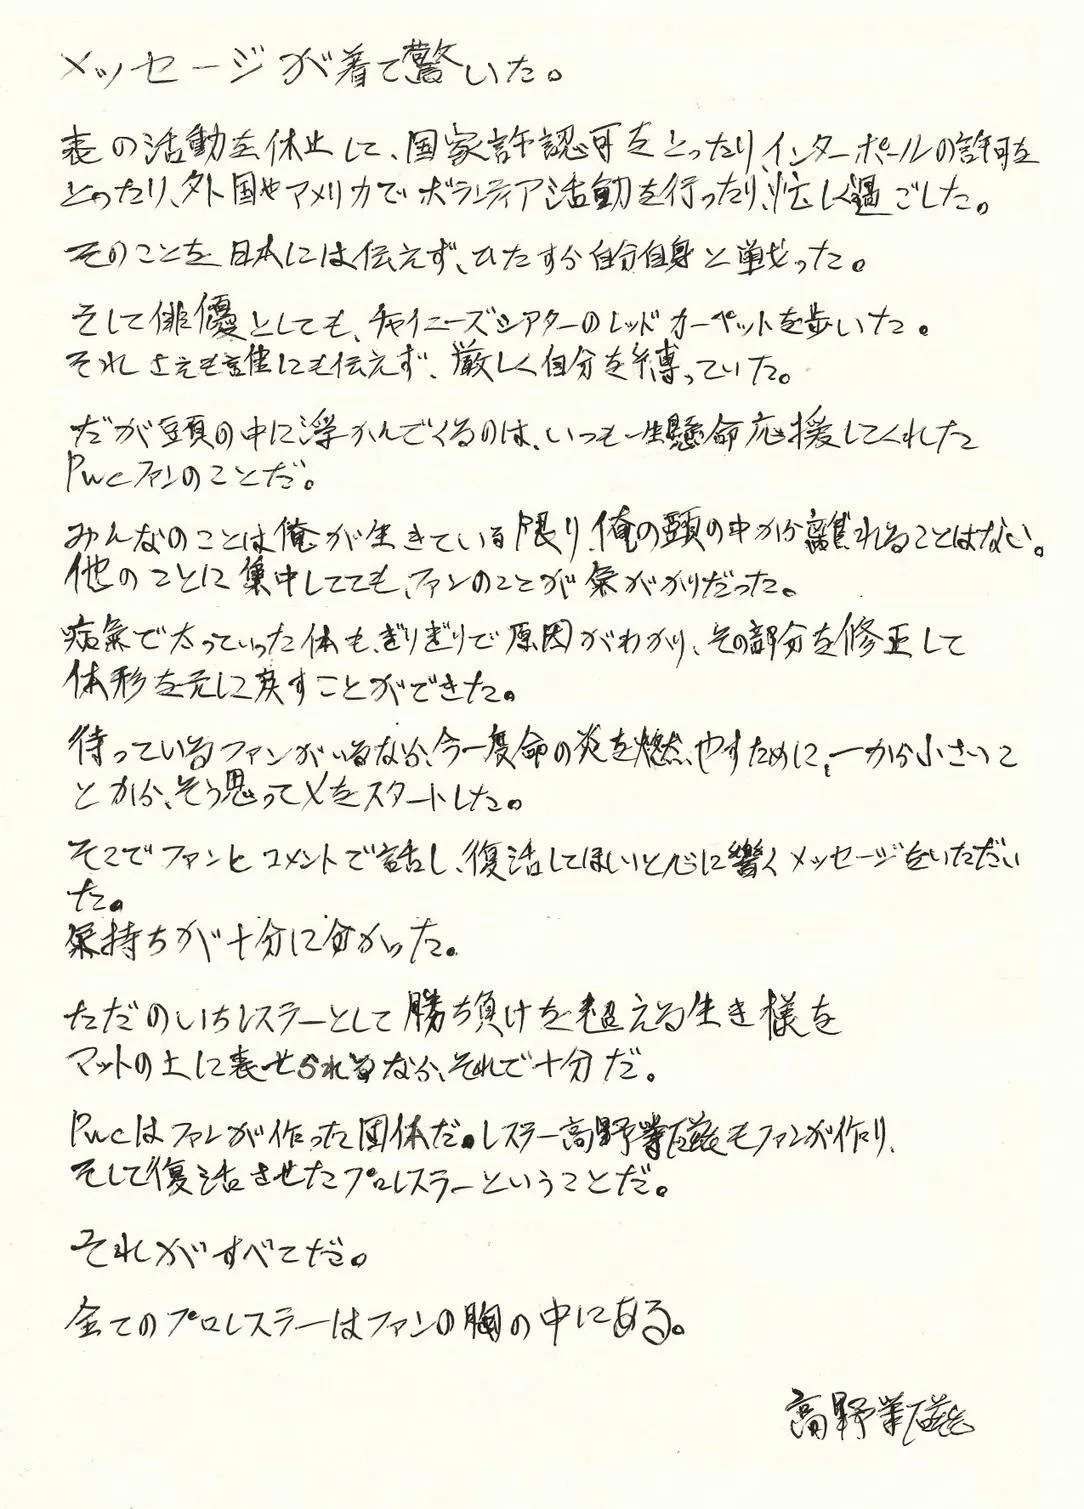 メッセージが着て驚いた。
表の活動を休止して、国家許認可をとったり、インターポールの許可を
とったり、外国やアメリカでボランティア活動を行ったり、忙しく過ごした。
そのことを日本には伝えず、ひたすら自分自身と戦った。
そして俳優としても、チャイニーズシアターのレッドカーペットを歩いた。
それさえも誰にも伝えず、厳しく自分を縛っていた。
だが頭の中に浮かんでくるのは、いつも一生懸命応援してくれした
PWCファンのことだ。
みんなのことは俺が生きている限り、俺の頭の中から離れることはない。
他のことに集中してても、ファンのことが気ががりだった。
病氣で太っていった体も、ぎりぎりで原因がわかり、その部分を修正して
体形を元に戻すことができた。
待っているファンがいるなら、今一度命の炎を燃やすために、一から小さいこ
とから、そう思ってXをスタートした。
そこでファンとコメントで話し、復活してほしいと心に響くメッセージをいただい
た。
気持ちが十分に分かった。
ただのいちレスラーとして勝ち負けを超える生き様を
マットの上に表せられるなら、それで十分だ。
PWCはファンが作った団体だ。レスラー高野拳磁もファンが作り、
そして復活させたプロレスラーということだ。
それがすべてだ。
全てのプロレスラーはファンの胸の中にある。
高野拳磁